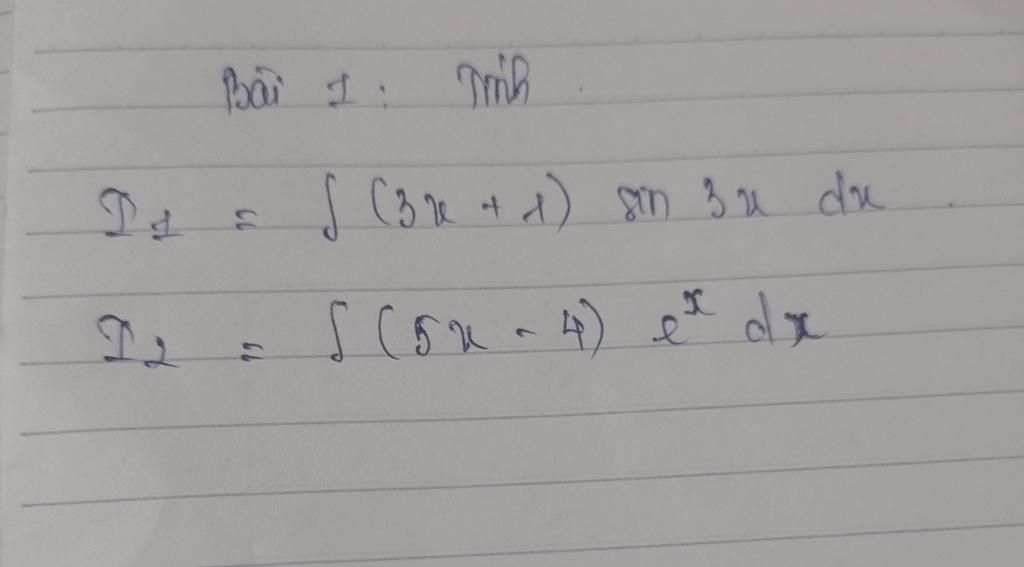 Bài 1 : Tính .
I1 = ∫ (3x + 1) sin 3x dx .
I2 = ∫ (5x - 4) e^x dx